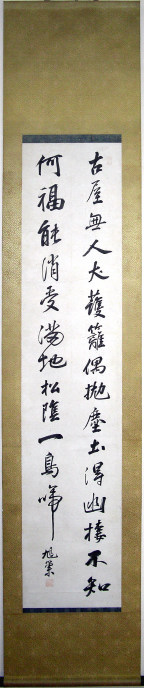 古屋無人犬護籬偶抛塵土得幽棲不知
何福能消受満地松陰一鳥啼
旭嶪